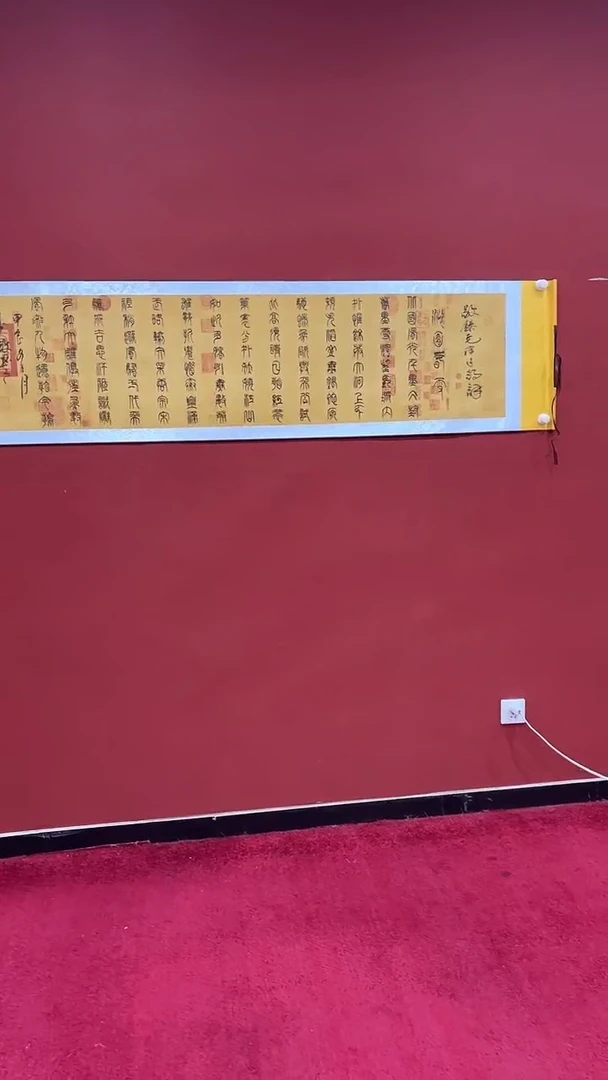 敬录毛泽东诗词
沁园春雪
北国风光千里冰封
万里雪飘望长城内
外惟余莽大河上下
顿失滔滔山舞银蛇原
驰蜡象欲与天公试
比高须晴日看红装
素裹分外妖娆江山
如此多娇引无数英
雄竞折腰惜秦皇汉
武略输文采唐宗宋
祖稍逊风骚一代天
骄成吉思汗只识弯
弓射大雕俱往矣数
风流人物还看今朝